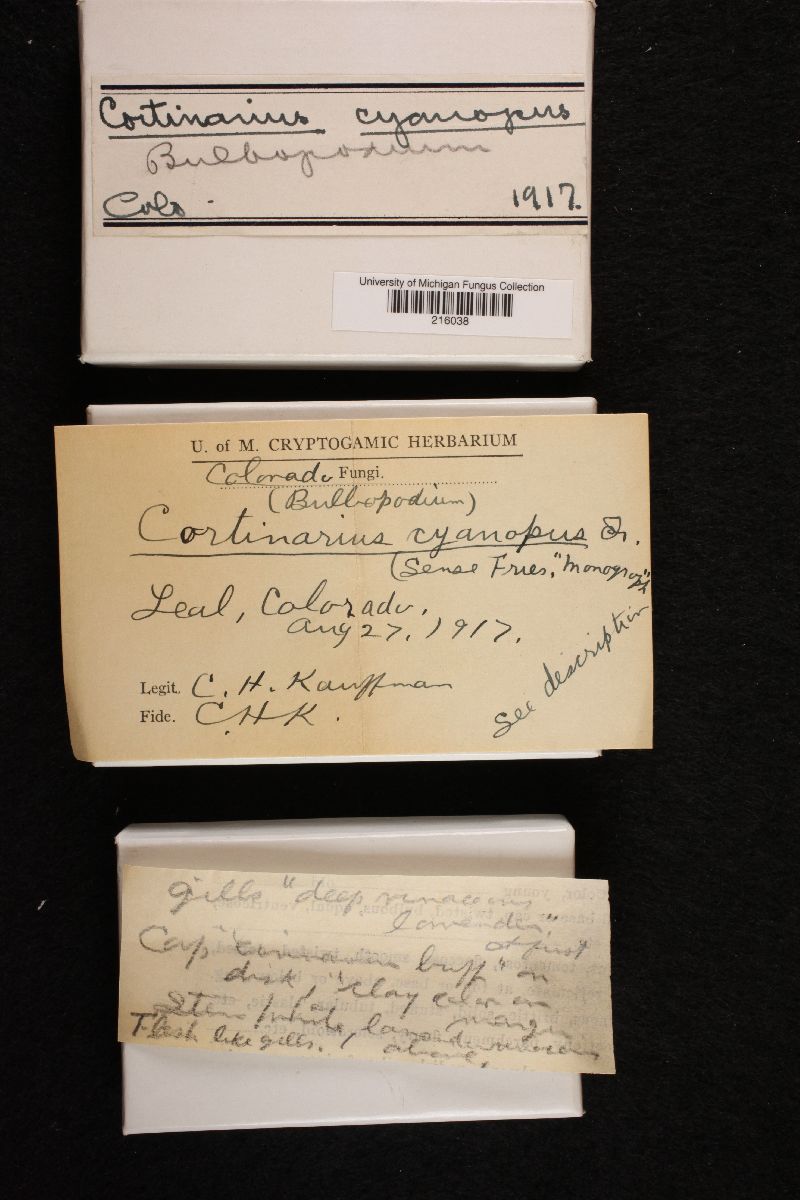 Cortinarius cyanopus
Bulbopodium
Colo. 1917.
University of Michigan Fungus Collection
216038
U. of M. CRYPTOGAMIC HERBARIUM
Colorado Fungi.
(Bulbopodium)
Cortinarius cyanopus Fr.
(Sense Fries, "Monograph"
Leal, Colorado.
Aug 27, 1917.
Legit. C. H. Kauffman
Fide. C.H.K.
See description
gills "deep vinaceous
lavender", at first
Cap "cinnamon buff" on
disk, "clay color on
margin
Stem white, lavender
above,
Flesh like gills.